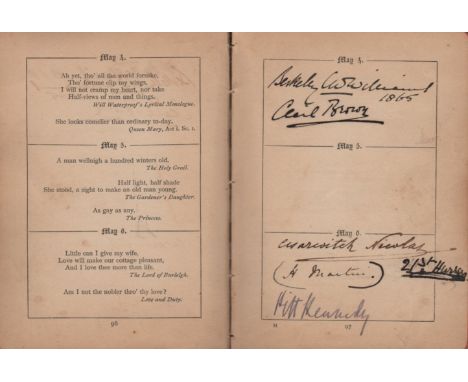 May 4.
Ah yet, tho' all the world forsake,
Tho' fortune clip my wings,
I will not cramp my heart, nor take
Half-views of men and things.
Will Waterproof's Lyrical Monologue.
She looks comelier than ordinary to-day.
Queen Mary, Act i. Sc. 1.
May 5.
A man wellnigh a hundred winters old.
The Holy Grail.
Half light, half shade
She stood, a sight to make an old man young.
The Gardener's Daughter.
As gay as any.
The Princess.
May 6.
Little can I give my wife.
Love will make our cottage pleasant,
And I love thee more than life.
The Lord of Burleigh.
Am I not the nobler thro' thy love?
Love and Duty.
96
May 4.
Berkeley Williams
1865
Cecil Brown
May 5.
May 6.
Cesarevitch Nicolas
(A Martin.)
21st Hussars
Pitt Kennedy
H
97